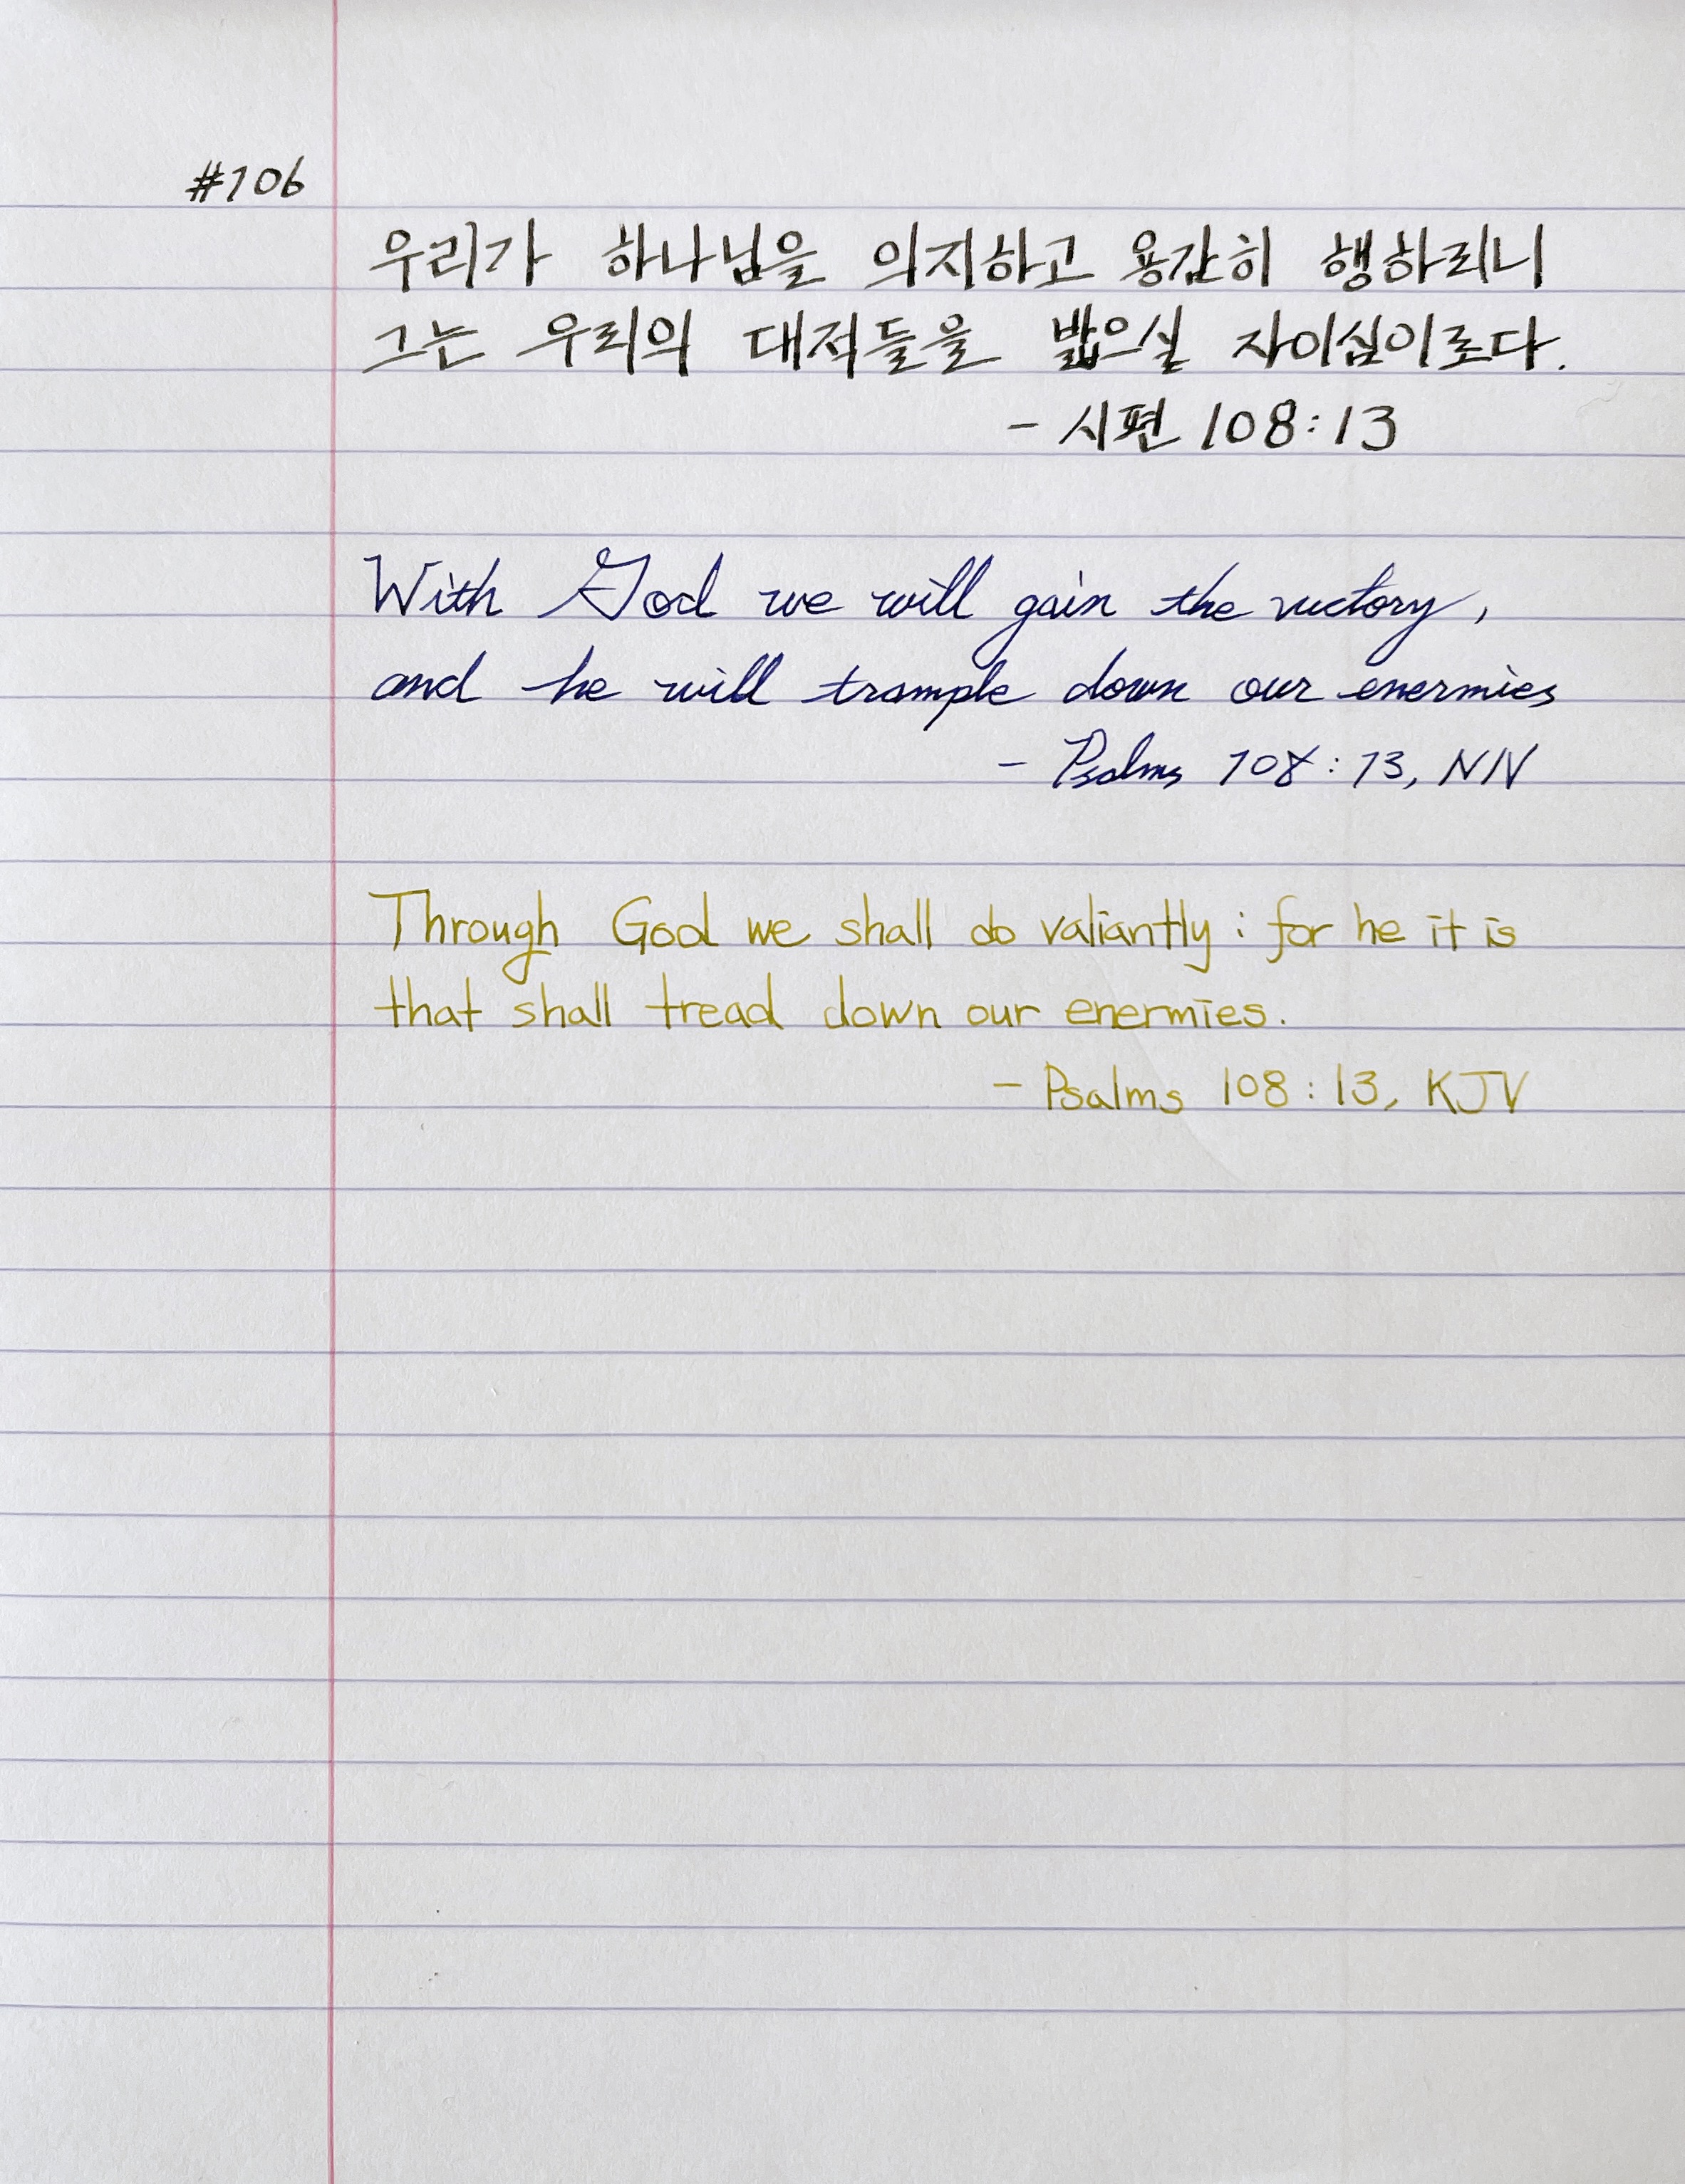 #106
우리가 하나님을 의지하고 용감히 행하리니
그는 우리의 대적들을 밟으실 자이심이로다.
- 시편 108:13
With God we will gain the victory,
and he will trample down our enermies
- Psalms 108:13, NIV
Through God we shall do valiantly: for he it is
that shall tread down our enermies.
- Psalms 108:13, KJV